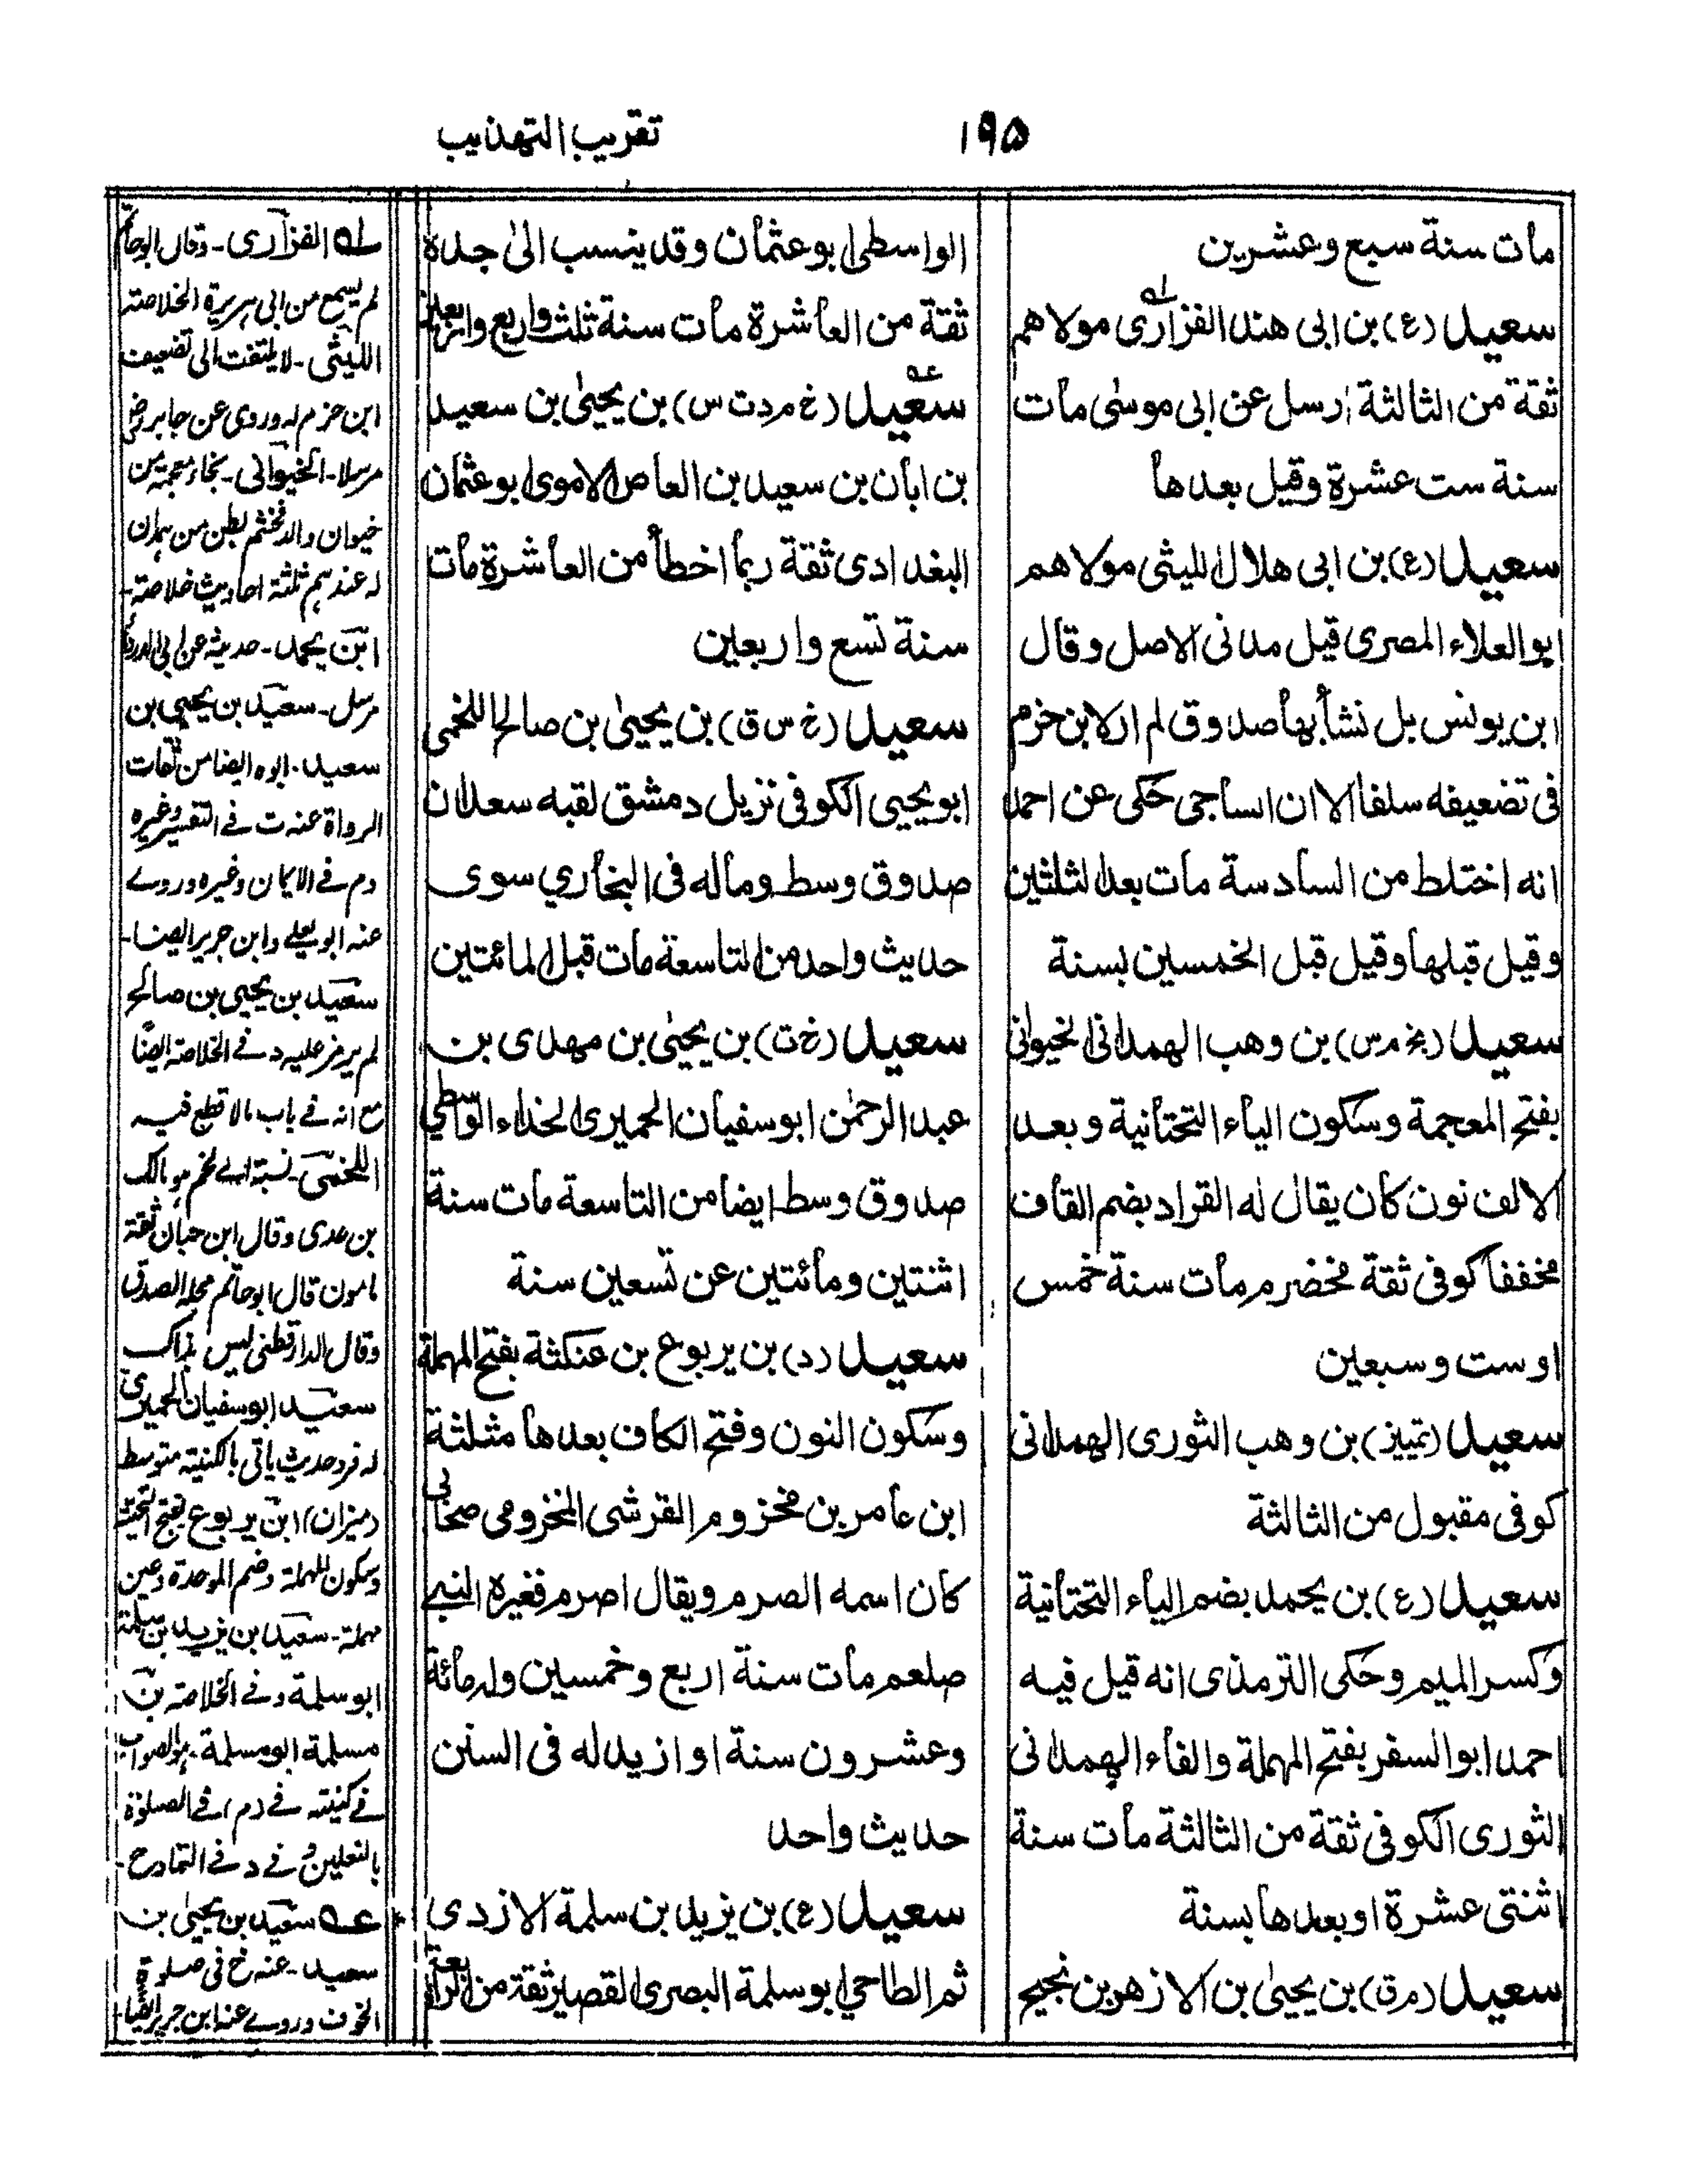 ١٩٥
تقريب التهذيب
مات سنة سبع وعشرين
سعيد (ع) بن ابى هند الفزارى مولاهم
ثقة من الثالثة ارسل عن ابى موسٰى مات
سنة ست عشرة وقيل بعدها
سعيد (ع) بن ابى هلال الليثى مولاهم
ابو العلاء المصرى قيل مدنى الاصل وقال
ابن يونس بل نشأ بها صدوق لم ار لابن حزم
فى تضعيفه سلفا الا ان الساجى حكى عن احمد
انه اختلط من السادسة مات بعد الثلثين
وقيل قبلها وقيل قبل الخمسين بسنة
سعيد (بخ م س) بن وهب الهمدانى الخيوانى
بفتح المعجمة وسكون الياء التحتانية وبعد
الالف نون كان يقال له القراد بضم القاف
مخففا كوفى ثقة مخضرم مات سنة خمس
او ست وسبعين
سعيد (تمييز) بن وهب الثورى الهمدانى
كوفى مقبول من الثالثة
سعيد (ع) بن يحمد بضم الياء التحتانية
وكسر الميم وحكى الترمذى انه قيل فيه
احمد ابو السفر بفتح المهملة والفاء الهمدانى
الثورى الكوفى ثقة من الثالثة مات سنة
اثنتى عشرة او بعدها بسنة
سعيد (م ق) بن يحيٰى بن الازهر بن نجيح
الواسطى ابو عثمان وقد ينسب الىٰ جده
ثقة من العاشرة مات سنة ثلث واربع واربعين
سعيد (خ م د ت س) بن يحيٰى بن سعيد
بن ابان بن سعيد بن العاص الاموى ابو عثمان
البغدادى ثقة ربما اخطأ من العاشرة مات
سنة تسع واربعين
سعيد (خ س ق) بن يحيٰى بن صالح اللخمى
ابو يحيى الكوفى نزيل دمشق لقبه سعدان
صدوق وسط وماله فى البخاري سوى
حديث واحد من التاسعة مات قبل المائتين
سعيد (خ ت) بن يحيٰى بن مهدى بن
عبد الرحمٰن ابو سفيان الحميرى الحذاء الواسطي
صدوق وسط ايضا من التاسعة مات سنة
اثنتين ومائتين عن تسعين سنة
سعيد (د) بن يربوع بن عنكثة بفتح المهملة
وسكون النون وفتح الكاف بعدها مثلثة
ابن عامر بن مخزوم القرشى المخزومى صحابى
كان اسمه الصرم ويقال اصرم فغيره النبے
صلعم مات سنة اربع وخمسين وله مائة
وعشرون سنة او ازيد له فى السنن
حديث واحد
سعيد (ع) بن يزيد بن سلمة الازدى
ثم الطاحي ابو سلمة البصرى القصير ثقة من الرابعة
لـه الفزارى - وقال ابو حاتم
لم يسمع من ابى هريرة الخلاصة
الليثى - لا يلتفت الى تضعيف
ابن حزم له وروى عن جابر رض
مرسلا - الخيوانى - بخاء معجمة من
خيوان والد خثم بطن من همدان
له عندهم ثلثة احاديث خلاصة -
ابن يحمد - حديثه عن ابى الدرداء
مرسل - سعيد بن يحيى بن
سعيد - ابوه ايضا من ثقات
الرواة عنه ت فے التفسير وغيره
وم فے الايمان وغيره وروے
عنه ابو يعلے وابن جرير ايضا -
سعيد بن يحيى بن صالح
لم يرمز عليه د فے الخلاصة ايضًا
مع انه فے باب ما لا قطع فيه
اللخمى - نسبة الے لخم هو مالك
بن عدى وقال ابن حبان ثقة
مامون قال ابو حاتم محله الصدق
وقال الدارقطنى ليس بذاك
سعيد ابو سفيان الحميرى
له فرد حديث ياتى بالكنية متوسط
(ميزان) ابن يربوع بفتح التحتية
وسكون المهملة وضم الموحدة وعين
مهملة - سعيد بن يزيد بن سلمة
ابو سلمة وفے الخلاصة بن
مسلمة ابو مسلمة - هو الصواب
فے كنيته فے (م) فے الصلوٰة
بالنعلين و فے د فے التمادح -
عـه سعيد بن يحيٰى بن
سعيد - عنه خ فى صلوة
الخوف وروے عنه ابن جرير ايضا -